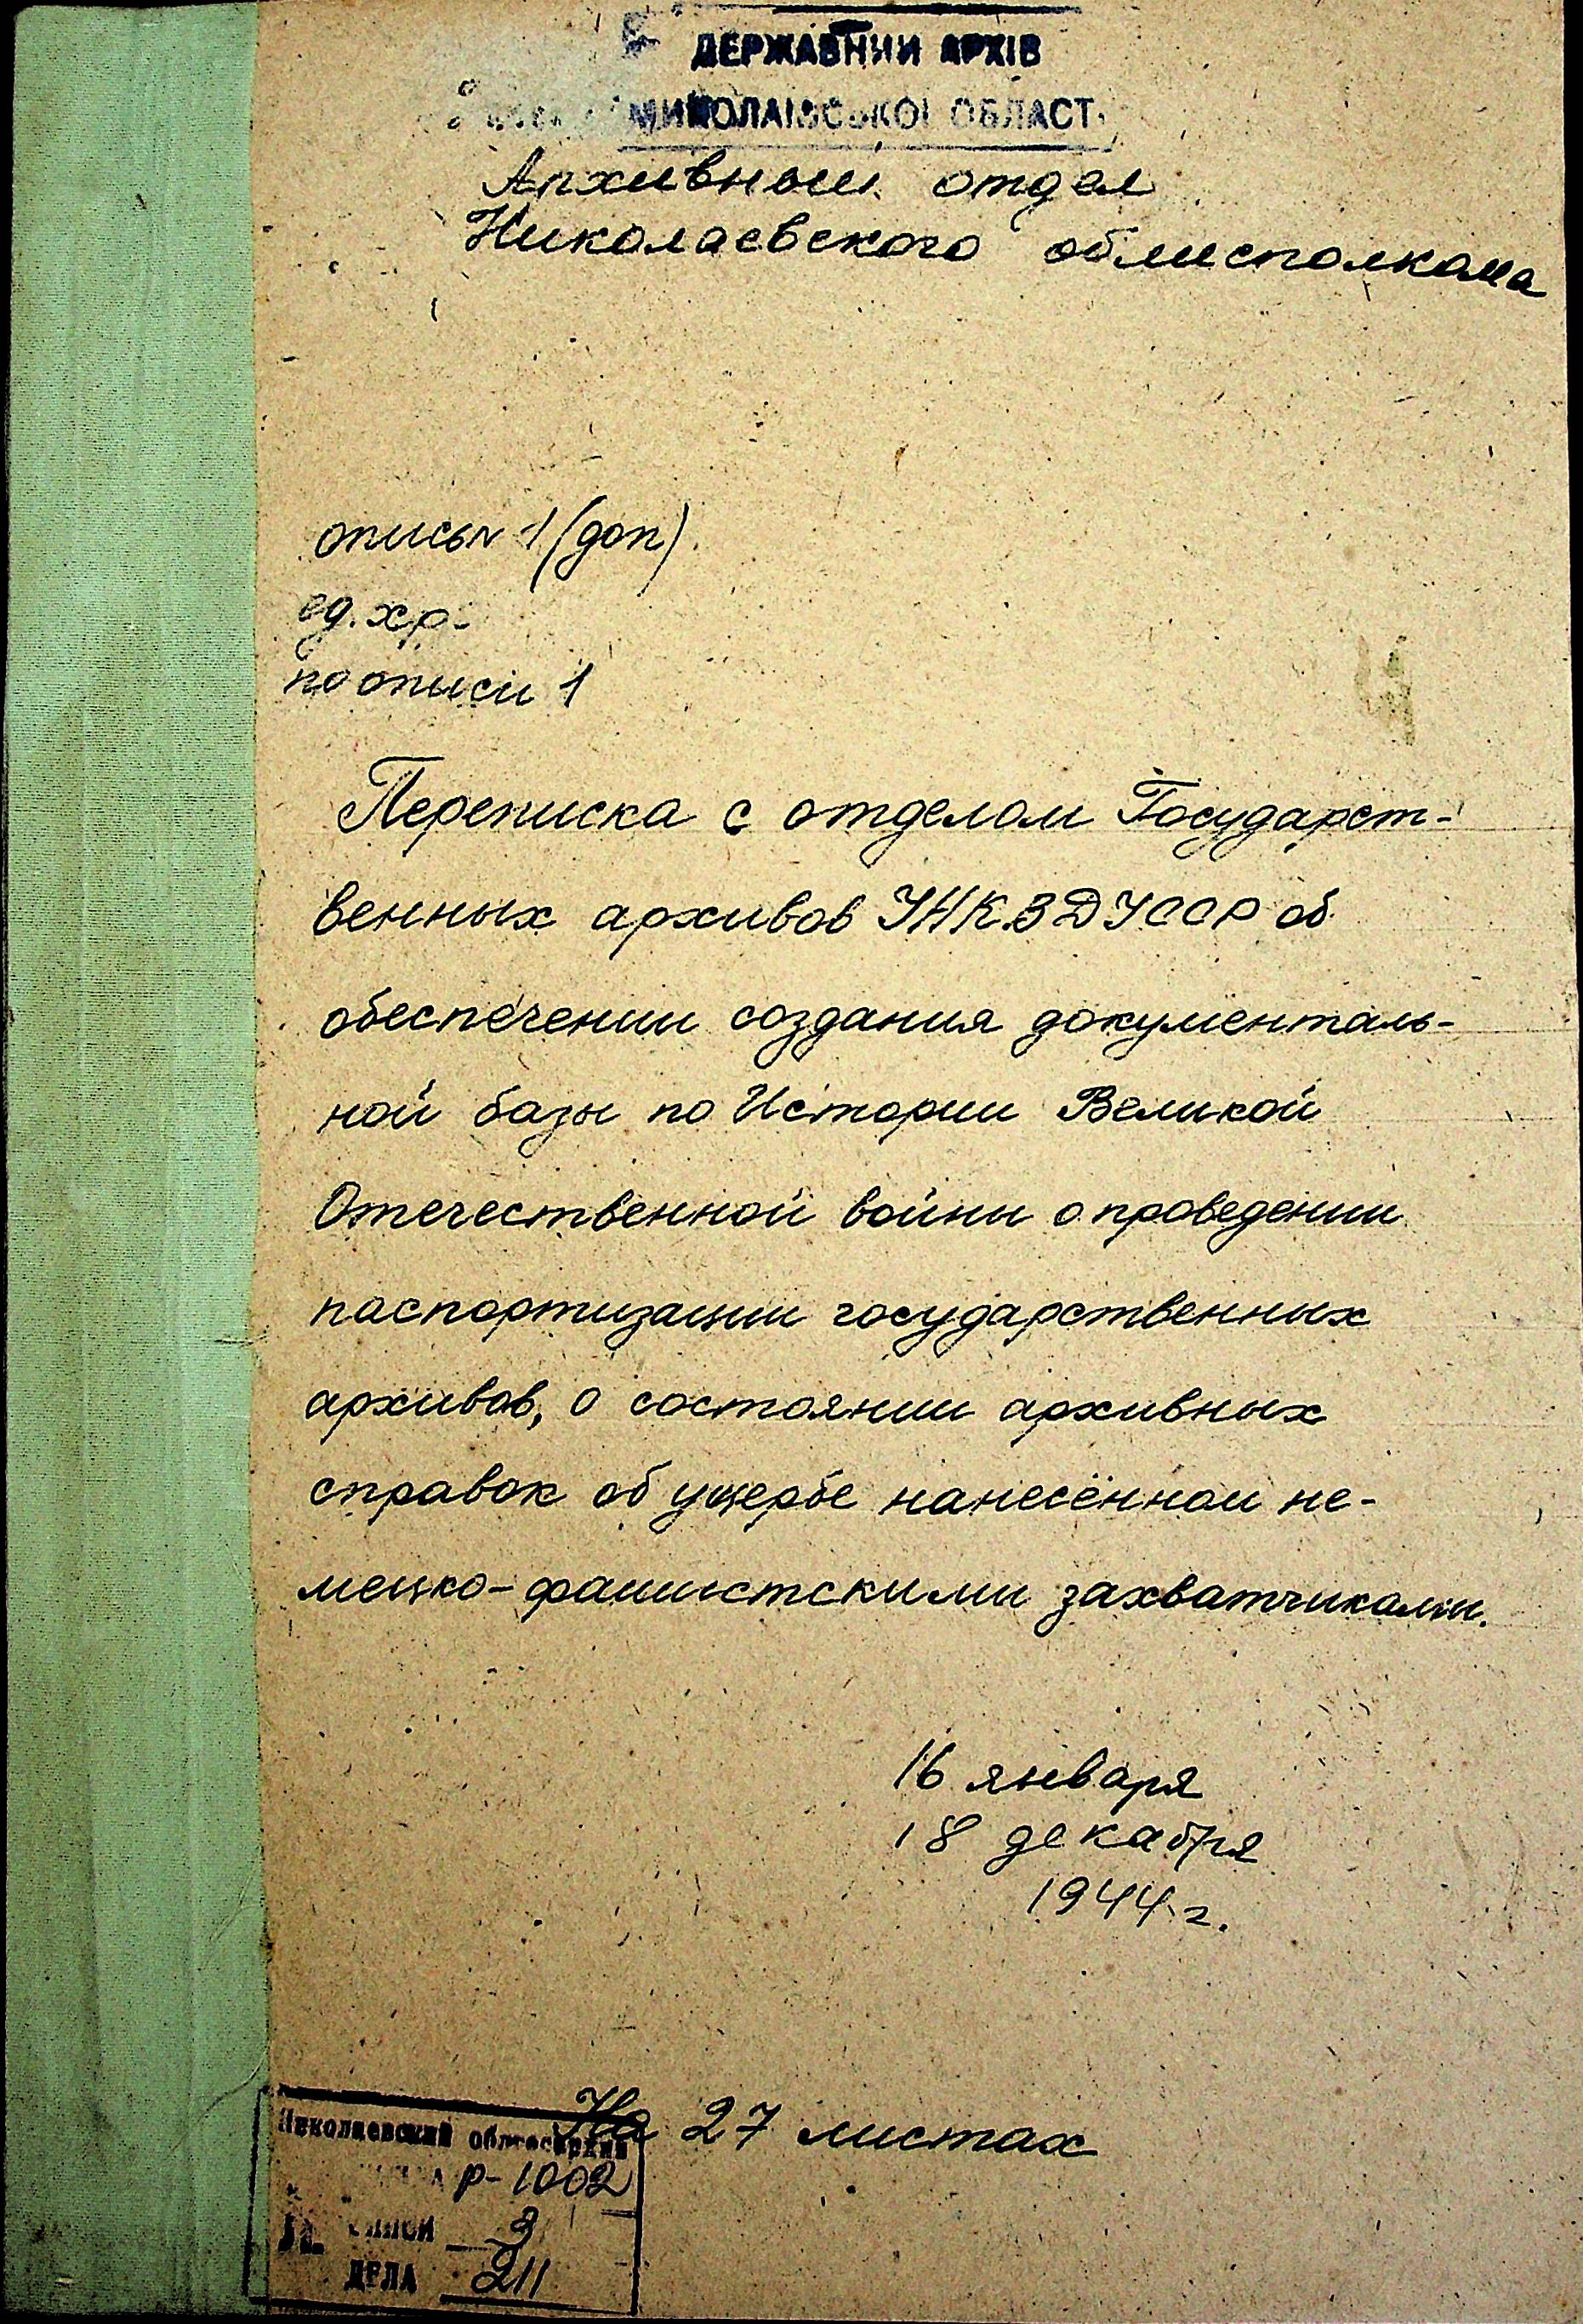 ДЕРЖАВНИЙ АРХІВ
МИКОЛАЇВСЬКОЇ ОБЛАСТІ
Архивный отдел
Николаевского облисполкома
опись№ 1 (доп)
ед. хр.
по описи 1
Переписка с отделом Государст-
венных архивов УНКВД УССР об
обеспечении создания документаль-
ной базы по Истории Великой
Отечественной войны о проведении
паспортизации государственных
архивов, о состоянии архивных
справок об ущербе нанесённом не-
мецко-фашистскими захватчиками.
16 января
18 декабря
1944 г.
На 27 листах
Николаевский облгосархив
Р-1002
№ описи 3
ДЕЛА 211